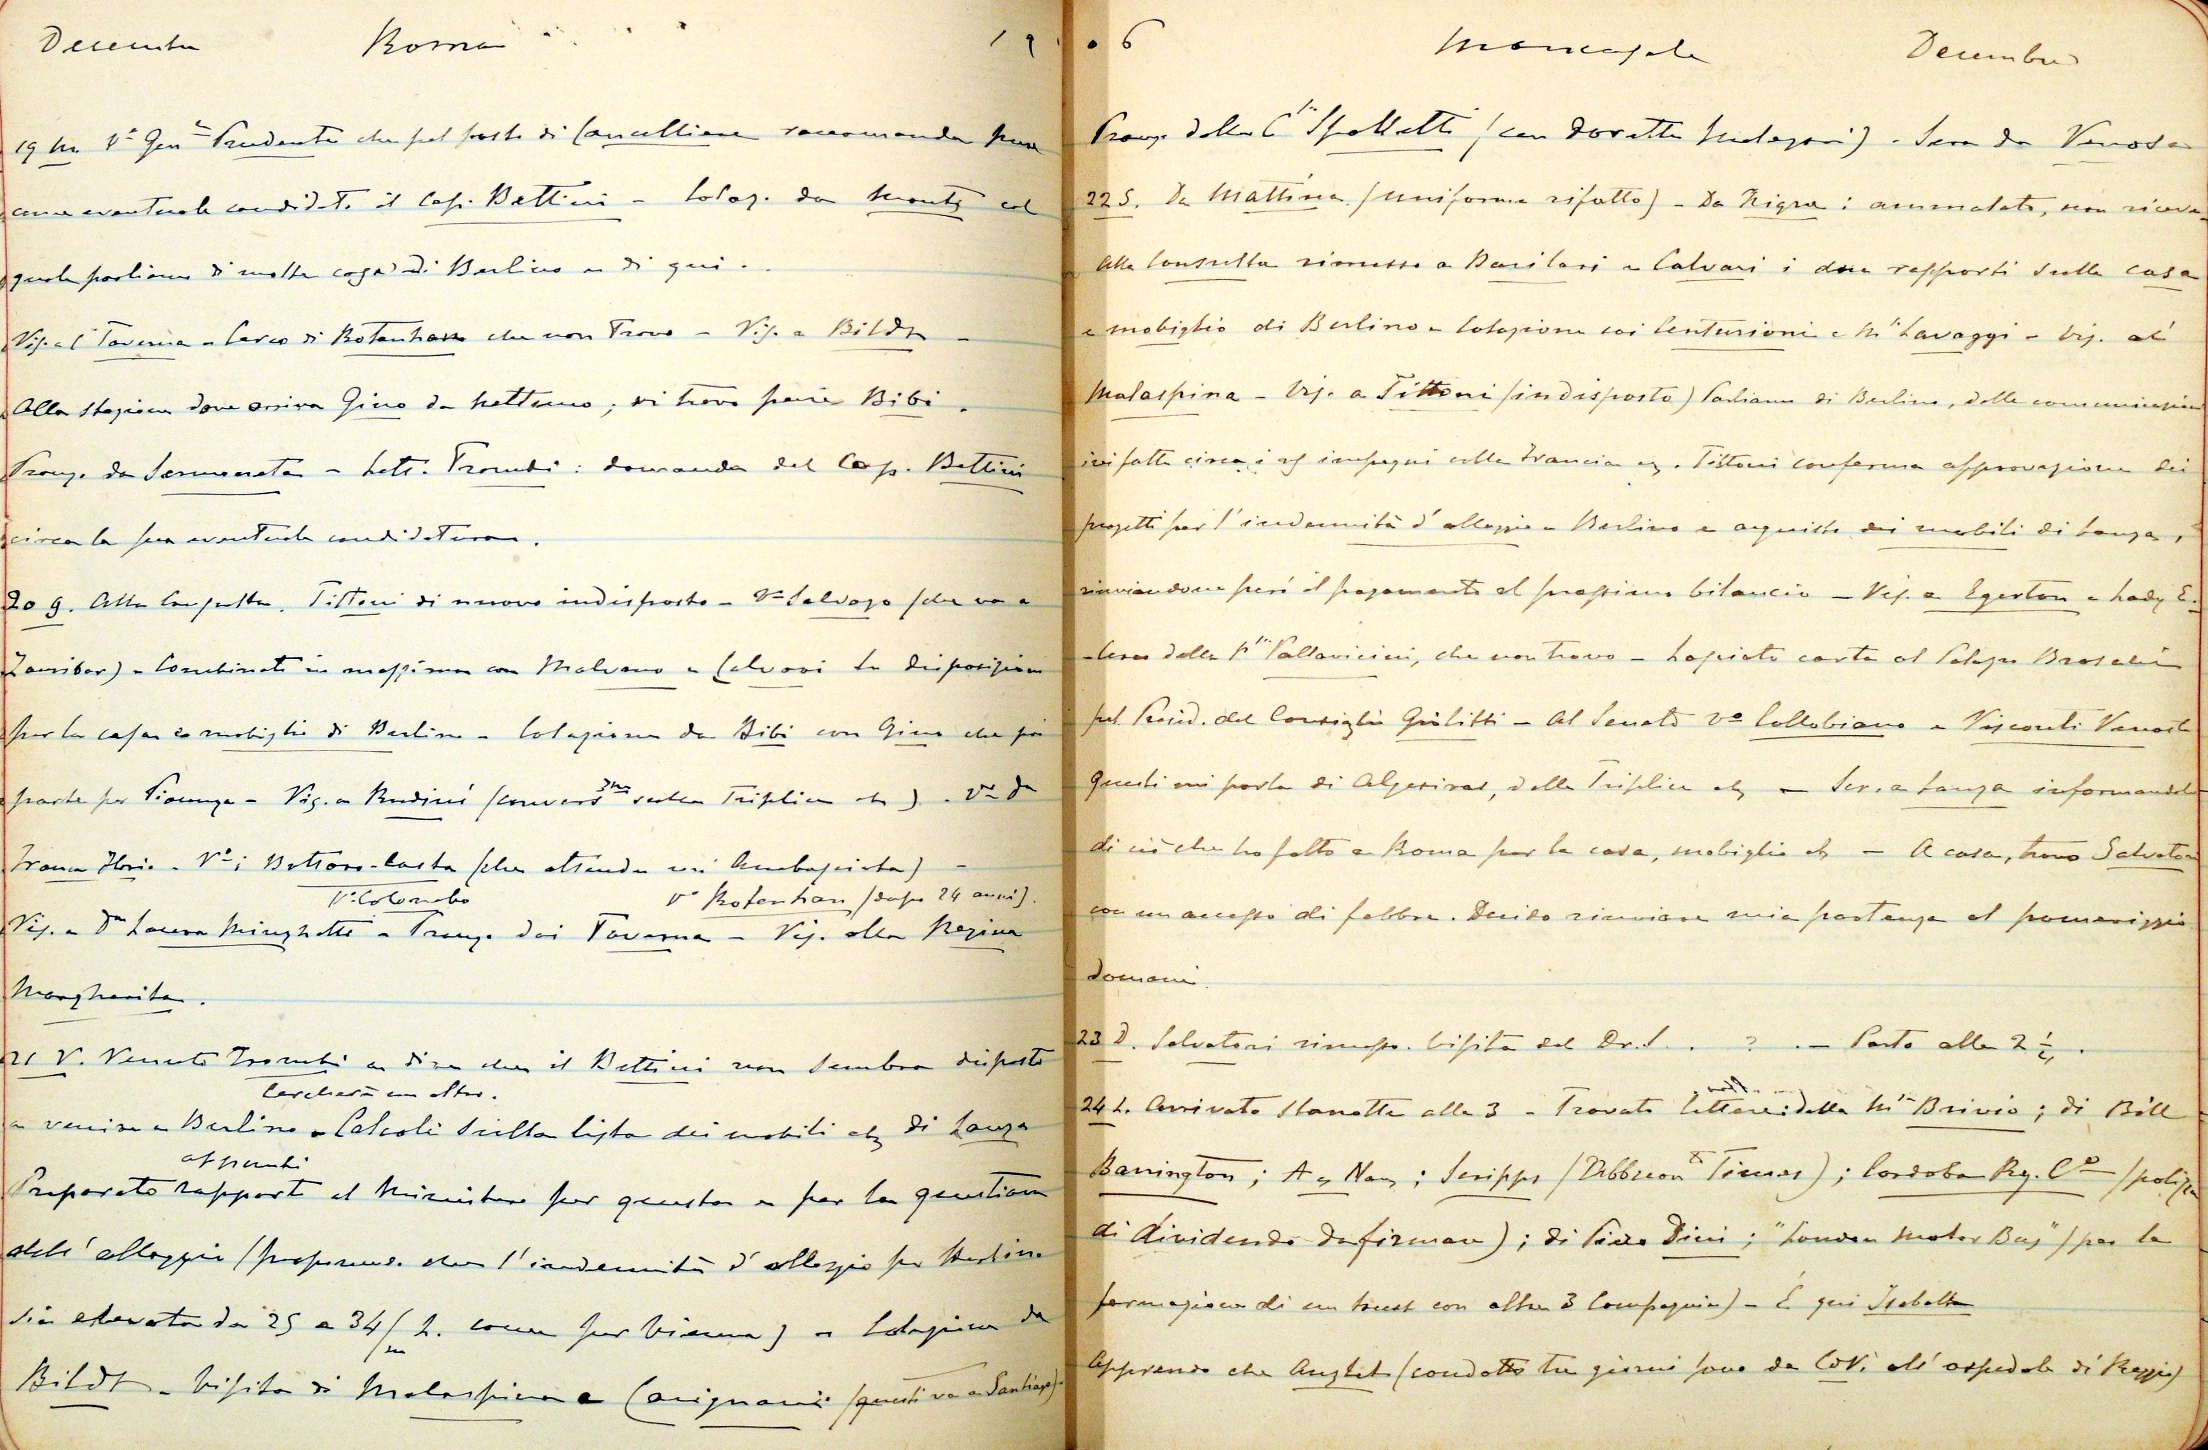 Decembre Roma 19
19 M. V° Gen.le Prudente che pel posto di Cancelliere raccomanda pure
come eventuale candidato il Cap. Bettini - Colaz. da Monts col
quale parliamo di molte cose di Berlino e di qui.
Vis. a C. Taverna - Cerco di Rotenhan che non trovo - Vis. a Bildt -
Alla stazione dove arriva Gino da Nettuno; vi trovo pure Bibi.
Pranzo da Sermoneta - Lett. Trombi: domanda del Cap. Bettini
circa la sua eventuale candidatura.
20 g. Alla Consulta. Tittoni di nuovo indisposto - V° Salvago (che va a
Zanzibar) - Combinati in massima con Malvano e Calvari le disposizioni
per la casa e mobiglio di Berlino - Colazione da Bibi con Gino che poi
parte per Piacenza - Vis. a Rudinì (convers.ne sulla Triplice etc) - V° Da
Franca Florio - V°: Bottaro-Costa (che attende un'Ambasciata) -
V° Colombo V° Rotenhan (dopo 24 anni).
Vis. a Da Laura Minghetti - Pranzo dai Taverna - Vis. alla Regina
Margherita.
21 V. Venuto Trombi a dire che il Bettini non sembra disposto
Cercherà un altro.
a venire a Berlino - Calcoli sulla lista dei mobili etc di Lanza
appunti
Preparato rapporti al Ministero per questa e per la questione
dell'alloggio (proponendo che l'indennità d'alloggio per Berlino
sia elevata da 25 a 34/m L. come per Vienna) - Colazione da
Bildt - Visita di Malaspina e Carignani (questi va a Santiago).
06 Moncasale Decembre
Pranzo dalla C.ssa Spalletti (con Doretta Melegari). Sera da Venosa
22 S. Da Mattina (uniforme rifatto) - Da Nigra: ammalato, non riceve.
Alla Consulta rimesso a Barilari e Calvari i due rapporti sulla casa
e mobiglio di Berlino - Colazione coi Centurioni e M.sa Lavaggi - Vis. al
Malaspina - Vis. a Tittoni (indisposto) Parliamo di Berlino, delle comunicazioni
ivi fatte circa i ns impegni colla Francia etc. Tittoni conferma approvazione dei
progetti per l'indennità d'alloggio a Berlino e acquisto dei mobili di Lanza,
rinviandone però il pagamento al prossimo bilancio - Vis. a Egerton e Lady E.
- Cerco della P.ssa Pallavicini, che non trovo - Lasciato carta al Palazzo Braschi
pel Presid. del Consiglio Giolitti - Al Senato V° Collobiano e Visconti Venosta
Questi mi parla di Algesiras, della Triplice etc - Scr. a Lanza informandolo
di ciò che ho fatto a Roma per la casa, mobiglio etc - A casa, trovo Salvatore
con un accesso di febbre. Decido rinviare mia partenza al pomeriggio
domani.
23 D. Salvatori rimesso. Visita del Dr. S. . ? . - Parto alle 2 1/4.
24 L. Arrivato stanotte alle 3 - Trovato lettere: della M.sa Brivio; di Bill
Barrington; A y Nav; Scripps (Dobbscon & Times); Cordoba Ry. Co (polizza
di dividendo da firmare); di Piero Dini; "London Motor Bus" (per la
formazione di un trust con altre 3 Compagnie) - È qui Isabella
Apprendo che Anzlet (condotto tre giorni sono da Covi all'ospedale di Reggio)